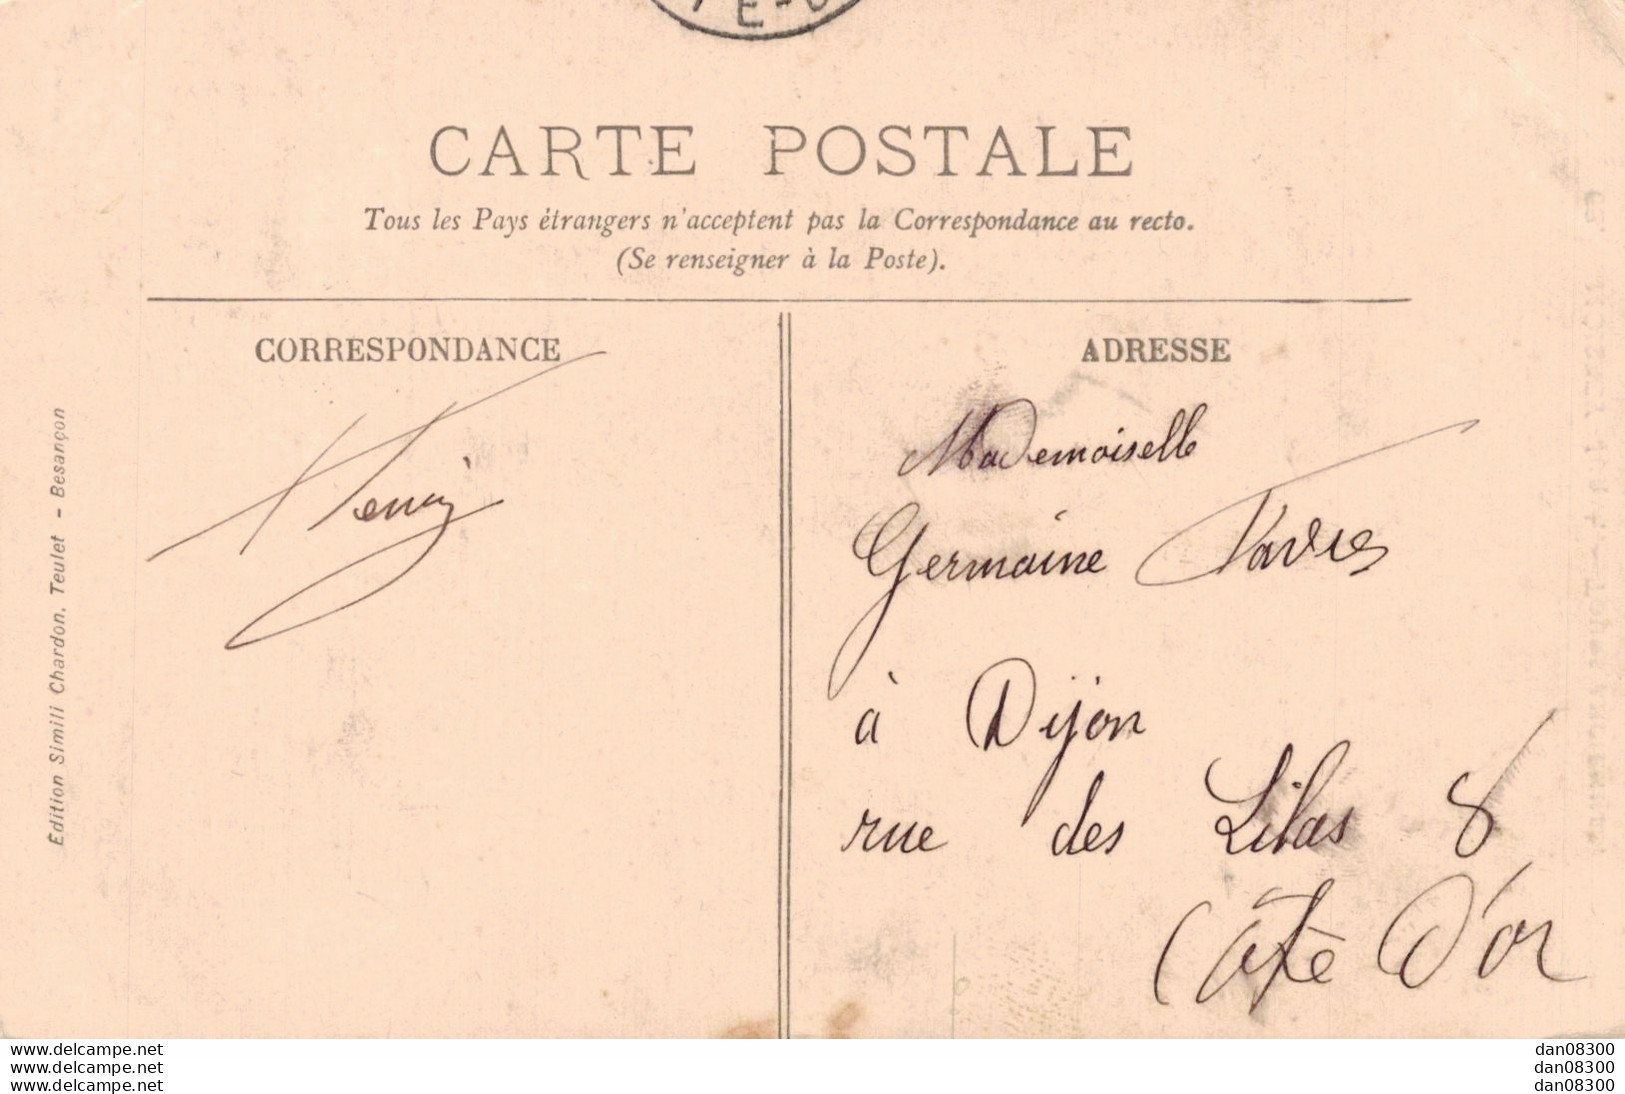 CARTE POSTALE
Tous les Pays étrangers n'acceptent pas la Correspondance au recto.
(Se renseigner à la Poste).
CORRESPONDANCE
Henri
Edition Simili Chardon, Teulet - Besançon
ADRESSE
Mademoiselle
Germaine
à Dijon
rue des Lilas 8
Côte D'or
www.delcampe.net
www.delcampe.net
www.delcampe.net
dan08300
dan08300
dan08300